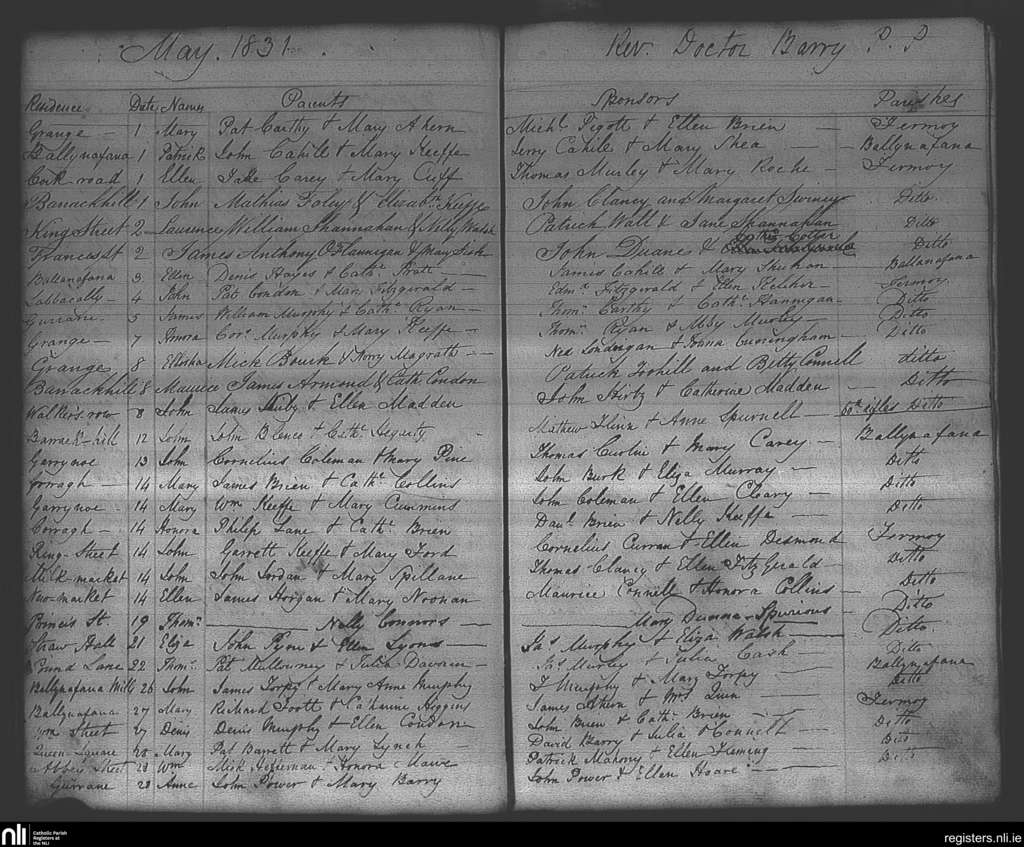 May. 1831
Rev. Doctor Barry P. P
Residence Date Names Parents Sponsors Parishes
Grange — 1 Mary Pat Carthy & Mary Ahern Michl Pigott & Ellen Brien — Fermoy
Ballynafana 1 Patrick John Cahill & Mary Keeffe Jerry Cahill & Mary Shea — Ballynafana
Cork road 1 Ellen Jake Carey & Mary Cuff Thomas Murley & Mary Roche — Fermoy
Barrackhill 1 John Mathias Foley & Elisabth Keeffe John Clancy and Margaret Swiney Ditto
King Street 2 Laurence William Shannahan & Nelly Walsh Patrick Wall & Jane Shannahan Ditto
Francis St 2 James Anthony O'Flannigan & Mary John Duane & Cotter Ditto
Ballanafana 3 Ellen Denis Hayes & Cathe Pratt — James Cahill & Mary Sheehan — Ballanafana
Labbacally — 4 John Pat Condon & Mary Fitzgerald — Edmd Fitzgerald & Ellen Kelliher — Fermoy
Gurrane — 5 James William Murphy & Cathe Ryan — Thoms Carthy & Cathe Hannigan — Ditto
Grange — 7 Honora Cors Murphy & Mary Keeffe — Thoms Ryan & Murley — Ditto
Grange 8 Mick Bourk & Nory Magrath — Ned Londregan & Cunningham — Ditto
Barrackhill 8 Maurice James Armond & Cath Condon Patrick Tohill and Betty Connell ditto
Walkers row 8 John James & Ellen Madden John & Catherine Madden — Ditto
Barrack-hill 12 John John Blenco & Cathe Hegarty Mathew Flinn & Anne Spurnell — 60th rifles Ditto
Garrynoe 13 John Cornelius Coleman & Mary Pine Thomas Curtin & Mary Carey — Ballynafana
Corragh — 14 Mary James Brien & Cathe Collins John Burk & Eliza Murray — Ditto
Garrynoe — 14 Mary Wm Keeffe & Mary Cummins John Coleman & Ellen Cleary — Ditto
Corragh — 14 Honora Philip Lane & Cathe Brien Danl Brien & Nelly Keeffe — Ditto
King-Street 14 John Garrett Keeffe & Mary Ford Cornelius Curran & Ellen Desmond Fermoy
Milk-market 14 John John Jordan & Mary Spillane Thomas Clancy & Ellen FitzGerald — Ditto
New-market 14 Ellen James Horgan & Mary Noonan Maurice Connell & Honora Collins — Ditto
Princis St. 19 Thoms — Nelly Connors — Mary Spurious — Ditto
Shaw Hall 21 Eliza John Pyne & Ellen Lyons — Js Murphy & Eliza Walsh — Ditto.
Pound Lane 22 Thoms Pat Mullowney & Julia — Js Murley & Julia Cash — Ditto
Ballynafana Mills 26 John James Torpy & Mary Anne Murphy J Murphy & Mary Torpy — Ballynafana
Ballynafana 27 Mary Richard Foott & Catharine Higgins James Ahern & Mrs Quin — Ditto
Wm Street 27 Denis Denis Murphy & Ellen Condon John Brien & Cathe Brien — Fermoy
Queen-Square 28 Mary Pat Barrett & Mary Lynch — David Barry & Julia O'Connell — Ditto
Abbey Street 28 Wm Mick Heffernan & Honora Patrick Mahony — & Ellen Fleming — Ditto
Gurrane 28 Anne John Power & Mary Barry John Power & Ellen Hoare — Ditto
nli
Catholic Parish
Registers at
the NLI
registers.nli.ie